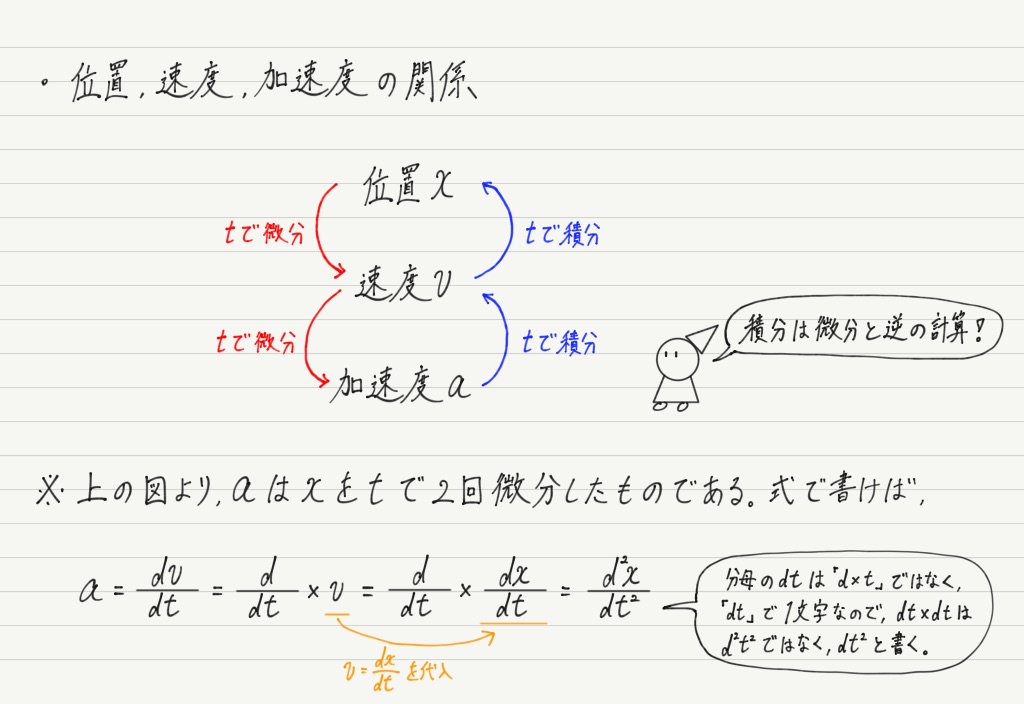 ・位置,速度,加速度の関係
位置x
tで微分
tで積分
速度v
tで微分
tで積分
加速度a
積分は微分と逆の計算!
※上の図より,aはxをtで2回微分したものである。式で書けば,
a = dv/dt = d/dt × v = d/dt × dx/dt = d²x/dt²
v = dx/dt を代入
分母のdtは「d×t」ではなく,
「dt」で1文字なので,dt×dtは
d²t²ではなく,dt²と書く。